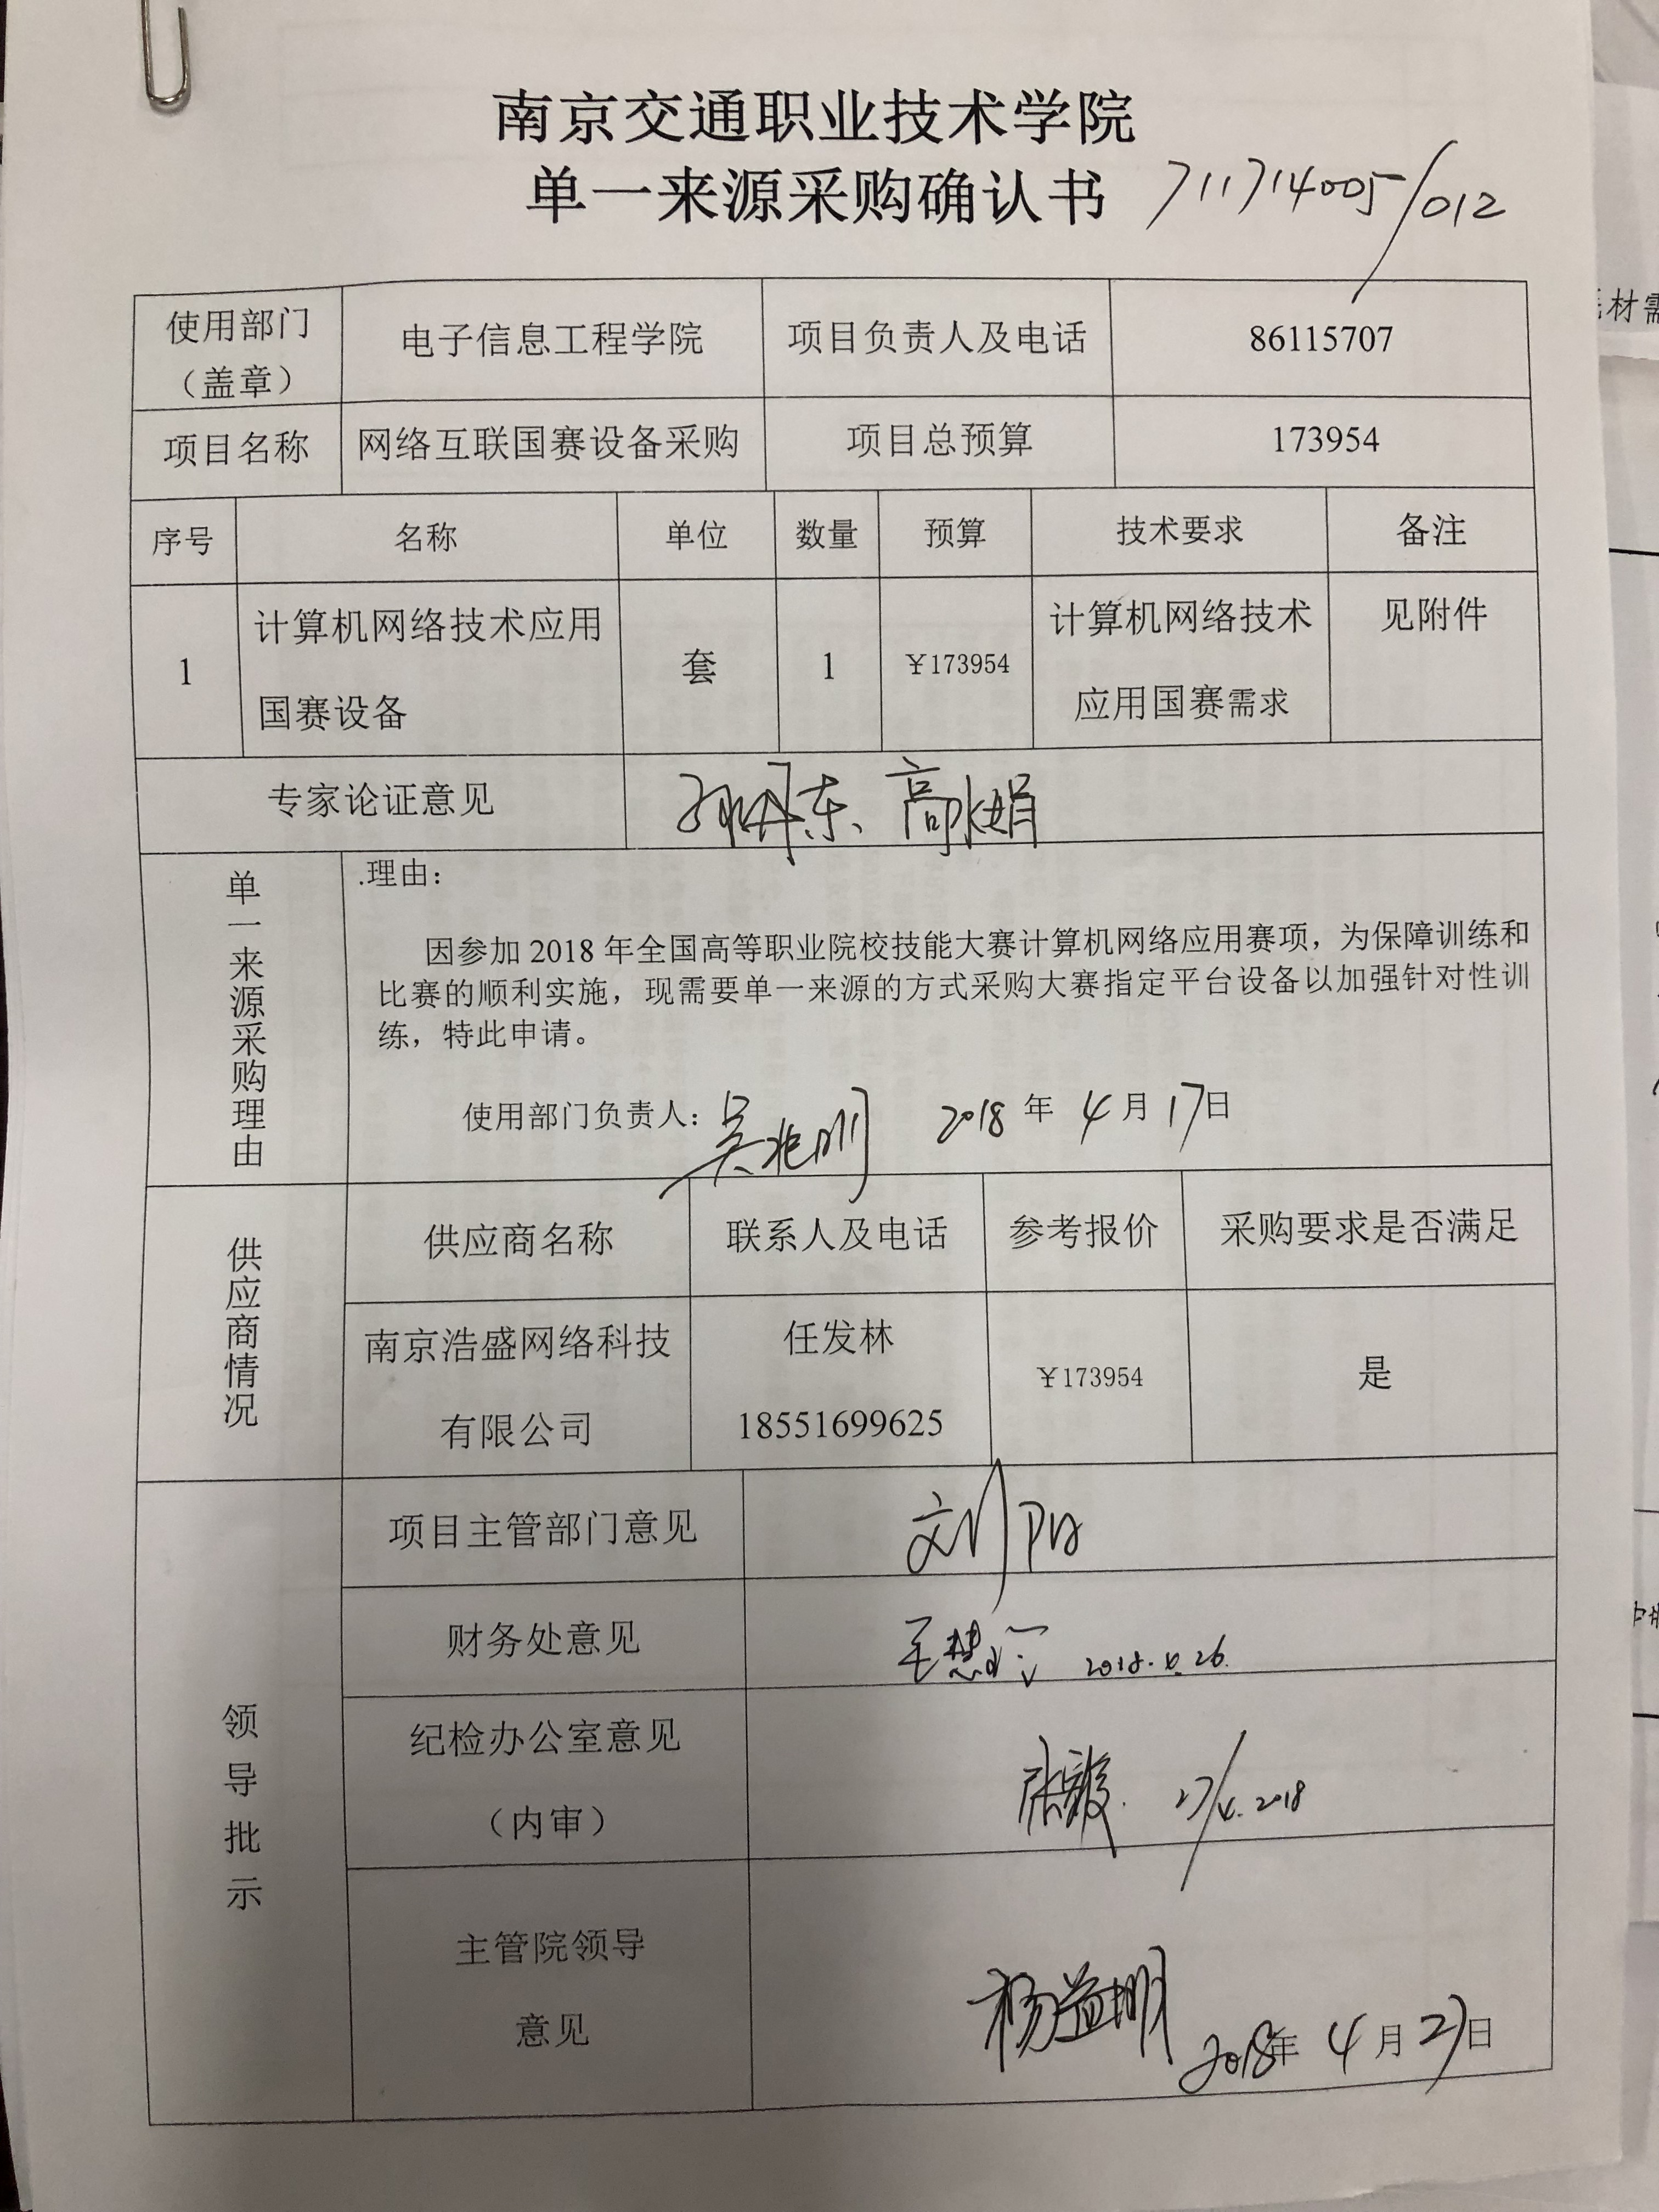 南京交通职业技术学院
单一来源采购确认书 711714005/012
使用部门
（盖章）
电子信息工程学院
项目负责人及电话
86115707
项目名称
网络互联国赛设备采购
项目总预算
173954
序号 名称 单位 数量 预算 技术要求 备注
1
计算机网络技术应用
国赛设备
套
1
￥173954
计算机网络技术
应用国赛需求
见附件
专家论证意见
高
单一来源采购理由
.理由：
因参加 2018 年全国高等职业院校技能大赛计算机网络应用赛项，为保障训练和
比赛的顺利实施，现需要单一来源的方式采购大赛指定平台设备以加强针对性训
练，特此申请。
使用部门负责人：吴兆明 2018 年 4 月 17日
供应商情况
供应商名称 联系人及电话 参考报价 采购要求是否满足
南京浩盛网络科技
有限公司
任发林
18551699625
￥173954
是
领导批示
项目主管部门意见
刘阳
财务处意见
王慧 2018.4.26.
纪检办公室意见
（内审）
张毅. 27/4.2018
主管院领导
意见
杨益明
2018年 4 月 27日
材需